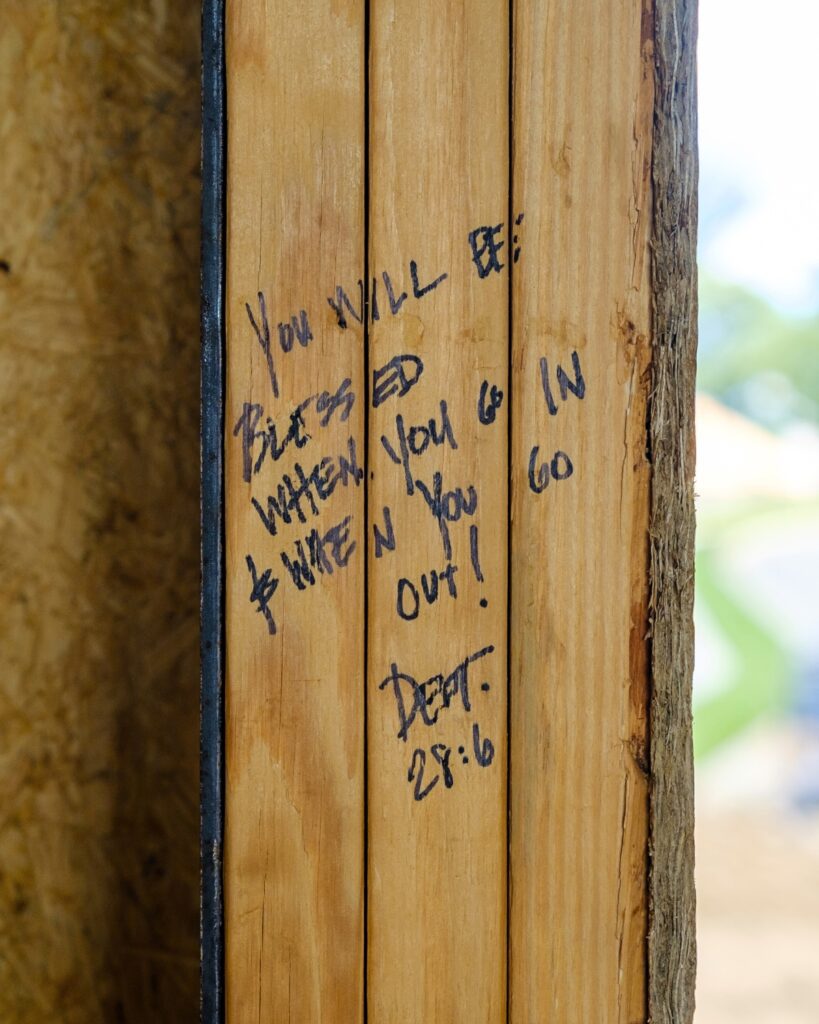 You WILL BE
BLESSED
WHEN YOU GO IN
& WHEN YOU GO
OUT!
DEUT.
28:6